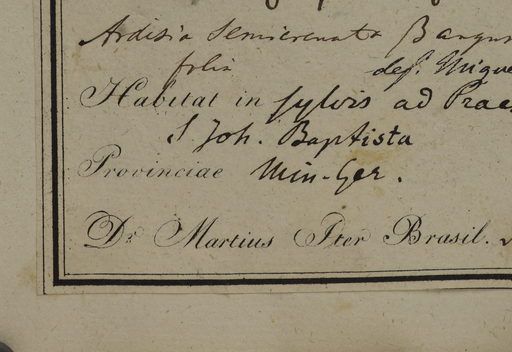 Ardisia semicrenata β angus
folia det. Mique
Habitat in sylvis ad Prae
S. Joh. Baptista
Provinciae Min-Ger.
Dr. Martius Iter Brasil.